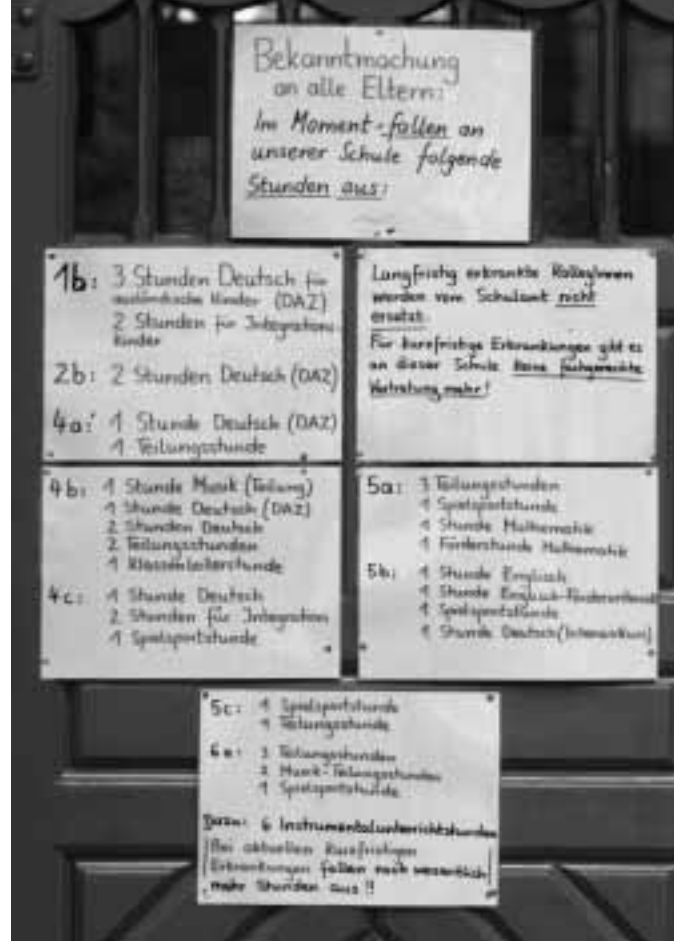 Bekanntmachung
an alle Eltern:
Im Moment fallen an
unserer Schule folgende
Stunden aus:
1b: 3 Stunden Deutsch für
ausländische Kinder (DAZ)
2 Stunden für Integrations-
kinder
2b: 2 Stunden Deutsch (DAZ)
4a: 1 Stunde Deutsch (DAZ)
1 Teilungsstunde
Langfristig erkrankte KollegInnen
werden vom Schulamt nicht
ersetzt.
Für kurzfristige Erkrankungen gibt es
an dieser Schule keine fachgerechte
Vertretung mehr!
4b: 1 Stunde Musik (Teilung)
1 Stunde Deutsch (DAZ)
2 Stunden Deutsch
2 Teilungsstunden
1 Klassenleiterstunde
4c: 1 Stunde Deutsch
2 Stunden für Integration
1 Spielsportstunde
5a: 3 Teilungsstunden
1 Spielsportstunde
1 Stunde Mathematik
1 Förderstunde Mathematik
5b: 1 Stunde Englisch
1 Stunde Englisch-Förderunterricht
1 Spielsportstunde
1 Stunde Deutsch (Intensivkurs)
5c: 1 Spielsportstunde
1 Teilungsstunde
3 Teilungsstunden
2 Musik-Teilungsstunden
1 Spielsportstunde
Dazu: 6 Instrumentalunterrichtstunden
Bei aktuellen kurzfristigen
Erkrankungen fallen noch wesentlich
mehr Stunden aus!!